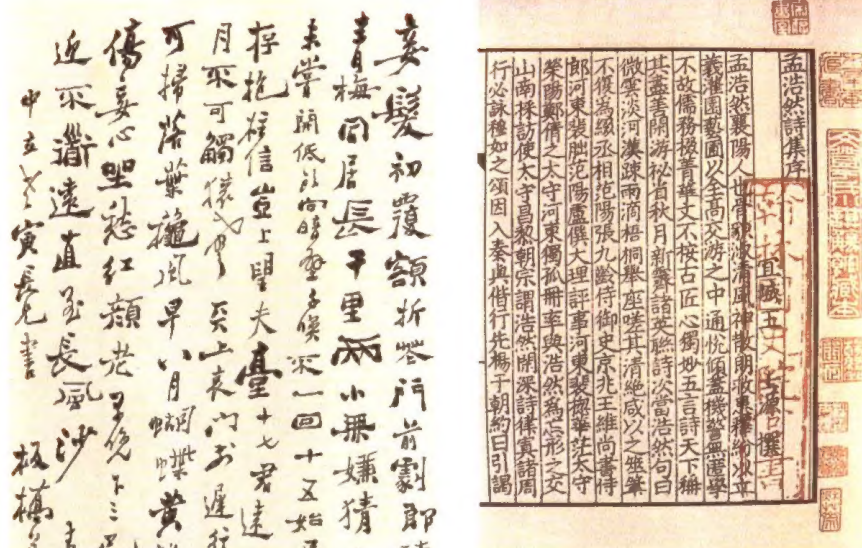 妾髮初覆額折花門前劇郎
青梅同居長干里兩小無嫌猜
未嘗開低頭向暗壁千喚不一回十五始
存抱柱信豈上望夫臺十六君遠
月不可觸猿聲天上哀門前遲行
可掃落葉秋風早八月蝴蝶黃
傷妾心坐愁紅顏老早晚下三
近不道遠直至長風沙
中立老寅長兄書 板橋
孟浩然詩集序
宜城王士源撰
孟浩然襄陽人也骨貌淑清風神散朗救患釋紛以立
義灌園藝圃以全高交游之中通悅傾蓋機警無匿學
不故儒務掇菁華文不按古匠心獨妙五言詩天下稱
其盡美閒游祕省秋月新霽諸英聯詩次當浩然句曰
微雲淡河漢疎雨滴梧桐舉座嗟其清絕咸以之筆
不復為綴丞相范陽張九齡侍御史京兆王維尚書侍
郎河東裴朏范陽盧僎大理評事河東裴華陰太守
滎陽鄭倩之太守河東獨孤冊率與浩然為忘形之交
山南採訪使太守昌黎朝宗謂浩然閒深詩律寘諸周
行必詠穆如之頌因入秦與偕行先揚于朝約日引謁